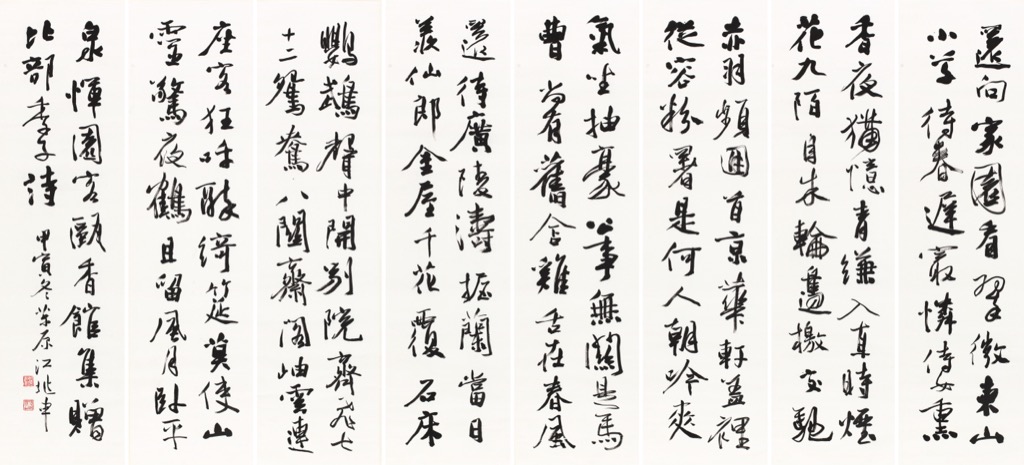 還向家園看翠微東山
小草待春遲最憐侍女熏
香夜猶憶青縑入直時煙
花九陌自朱輪邊檄交馳
赤羽頻回首京華軒蓋裡
從容粉署是何人朝吟爽
氣坐抽豪公事無關是馬
曹尚有舊含雞舌在春風
還待廣陵濤握蘭當日
羨仙郎金屋千花覆石床
鸚鵡聲中開別院齊飛七
十二鴛鴦八關齋閣岫雲連
座客狂呼醉綺筵莫使山
靈驚夜鶴且留風月臥平
泉惲園客甌香館集贈
比部李子詩 甲寅冬椒原江兆申